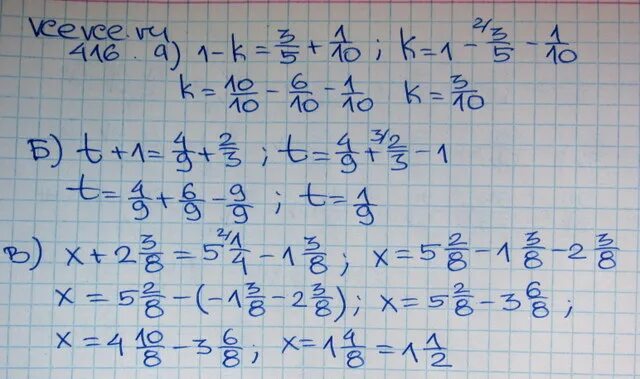 vcevce.ru
416. а) 1-k = 3/5 + 1/10 ; k = 1 - ²/3/5 - 1/10
k = 10/10 - 6/10 - 1/10 k = 3/10
Б) t + 1 = 4/9 + 2/3 ; t = 4/9 + ³/2/3 - 1
t = 4/9 + 6/9 - 9/9 ; t = 1/9
В) x + 2 3/8 = 5 ²/1/4 - 1 3/8 ; x = 5 2/8 - 1 3/8 - 2 3/8
x = 5 2/8 - (-1 3/8 - 2 3/8) ; x = 5 2/8 - 3 6/8 ;
x = 4 10/8 - 3 6/8 ; x = 1 4/8 = 1 1/2